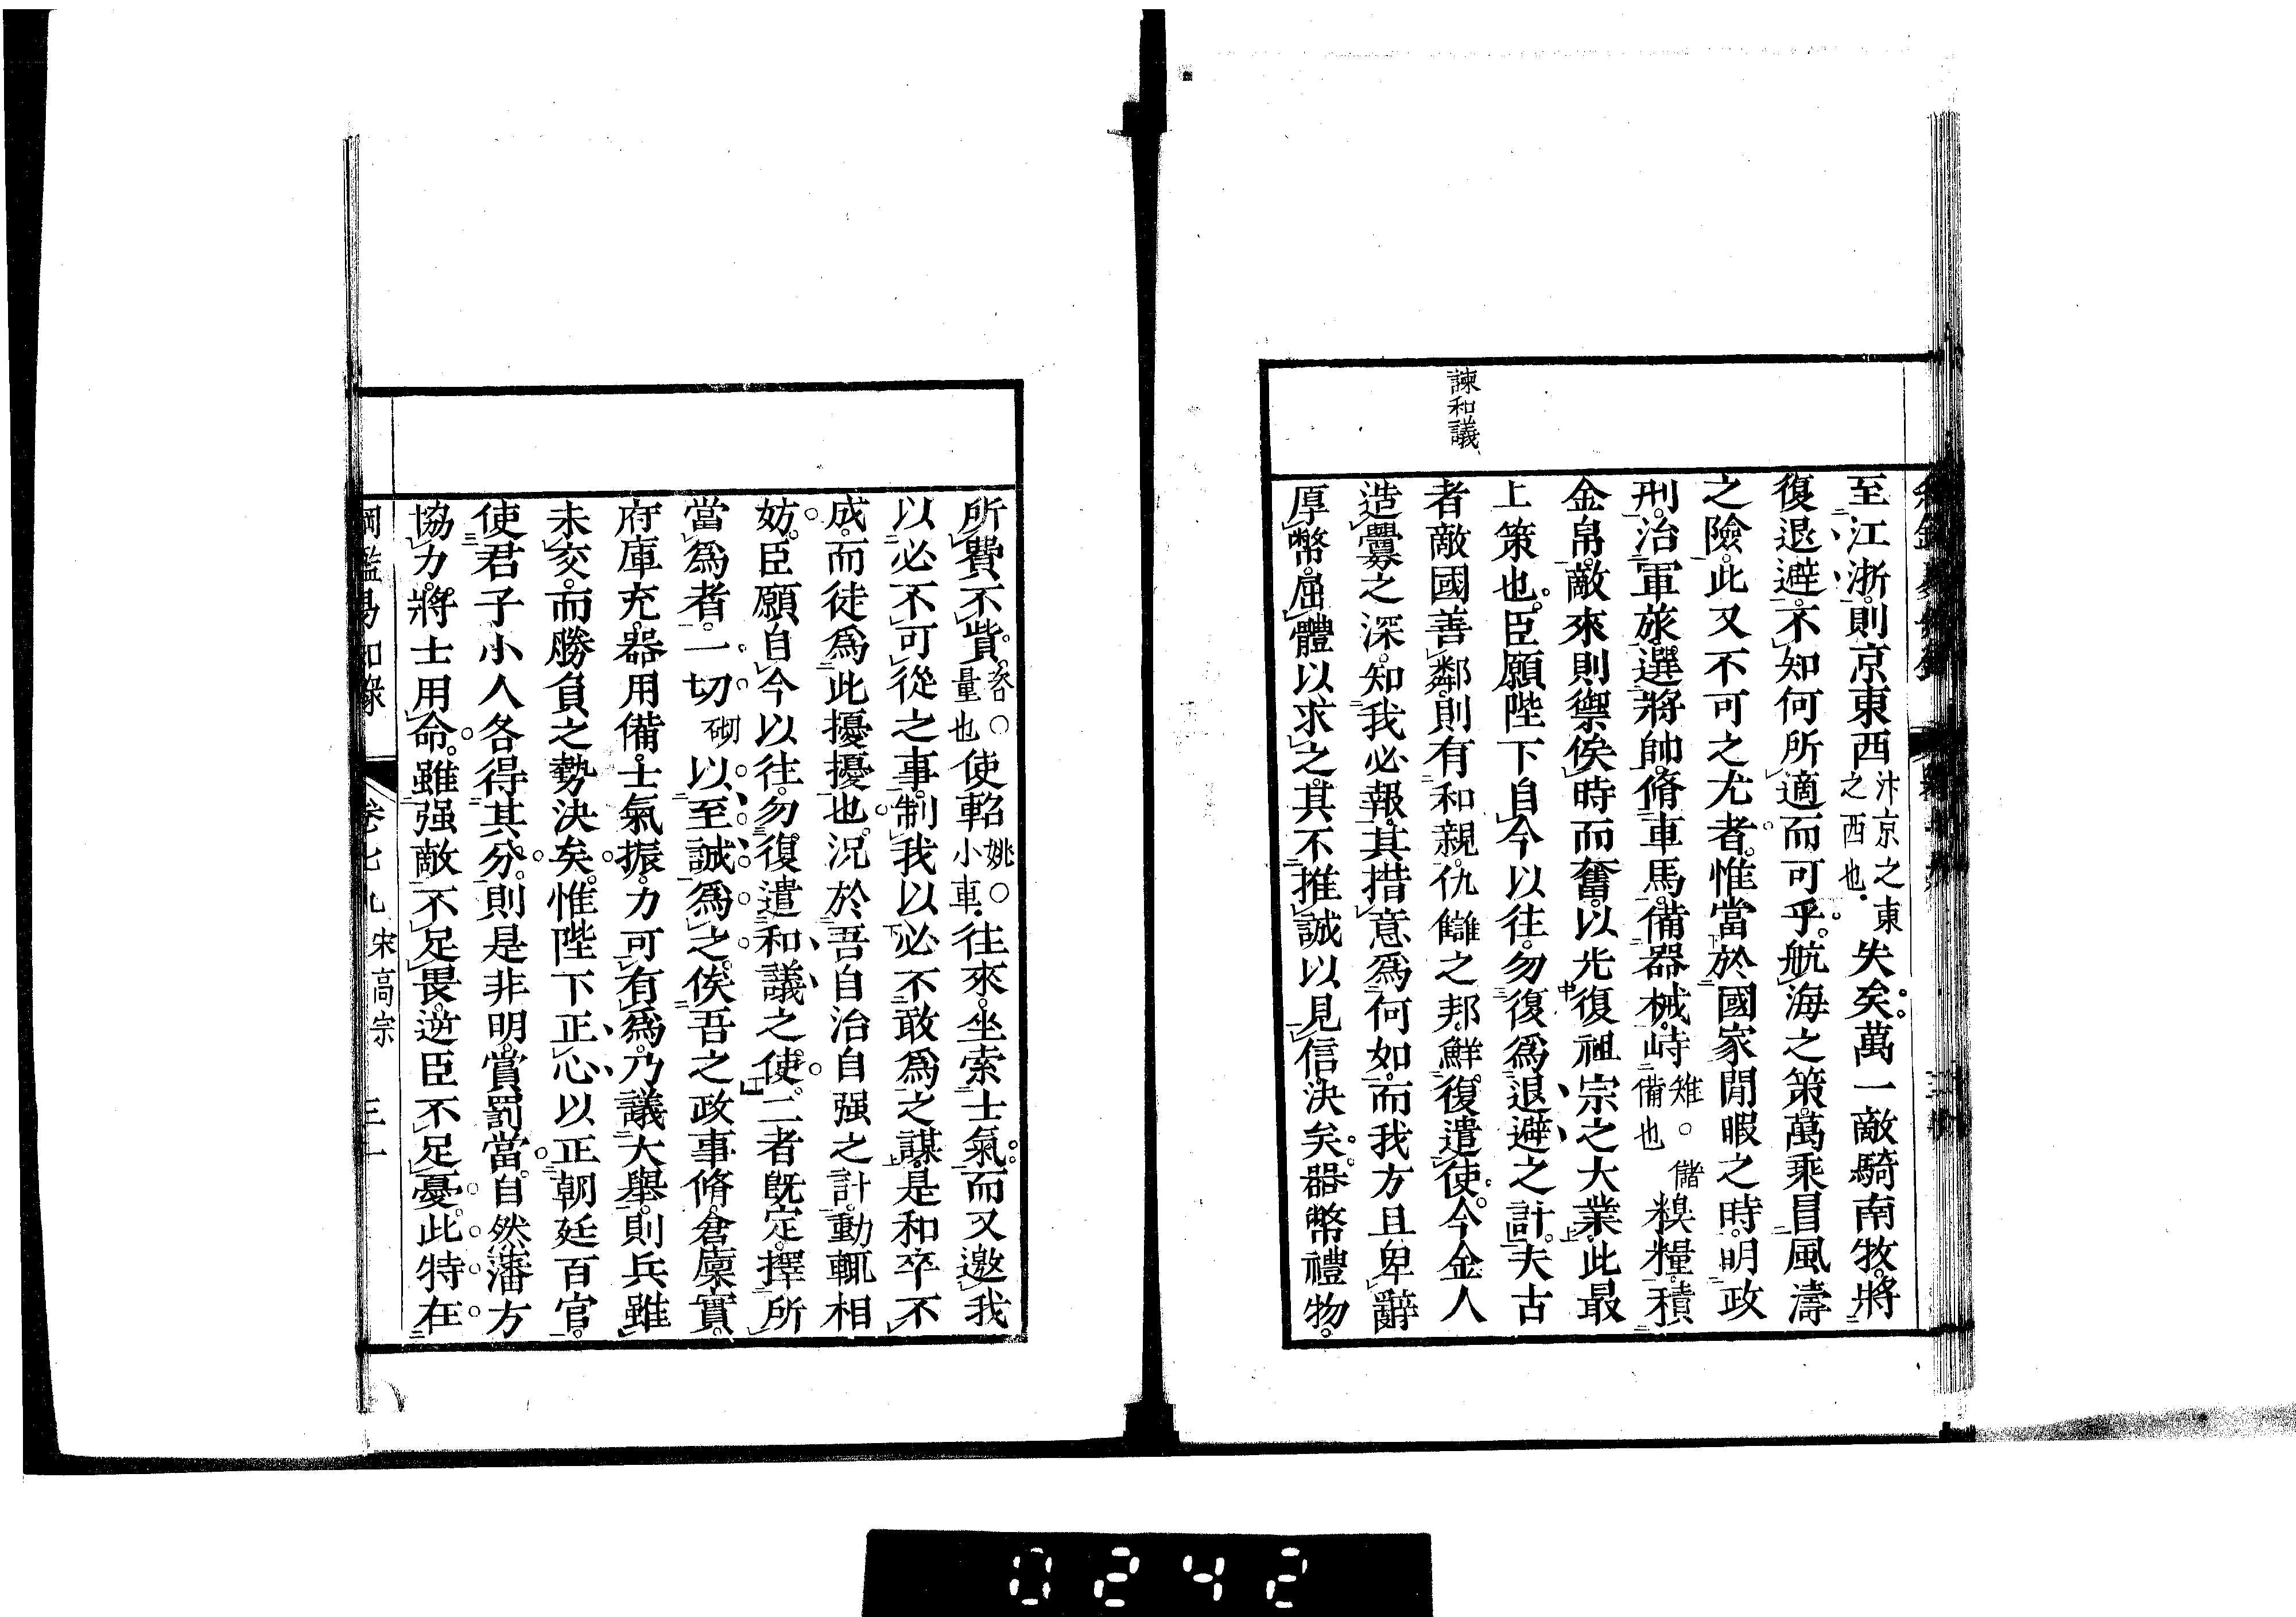 諫和議
至江浙則京東西汴京之東之西也失矣。萬一敵騎南牧。將
復退避。不知何所適而可乎。航海之策。萬乘冒風濤
之險。此又不可之尤者。惟當於國家閒暇之時。明政
刑。治軍旅。選將帥。脩車馬。備器械。峙雉。儲備也糗糧。積
金帛。敵來則禦。俟時而奮。以光復祖宗之大業。此最
上策也。臣願陛下自今以往。勿復爲退避之計。夫古
者敵國善鄰。則有和親。仇讎之邦。鮮復遣使。今金人
造釁之深。知我必報。其措意爲何如。而我方且卑辭
厚幣。屈體以求之。其不推誠以見信決矣。器幣禮物。
所費不貲。咨○量也使軺姚○小車往來。坐索士氣。而又邀我
以必不可從之事。制我以必不敢爲之謀。是和卒不
成。而徒爲此擾擾也。況於吾自治自强之計。動輒相
妨。臣願自今以往。勿復遣和議之使。二者旣定。擇所
當爲者。一切砌以至誠爲之。俟吾之政事脩。倉廩實。
府庫充。器用備。士氣振。力可有爲。乃議大舉。則兵雖
未交。而勝負之勢決矣。惟陛下正心以正朝廷百官。
使君子小人各得其分。則是非明。賞罰當。自然藩方
協力。將士用命。雖强敵不足畏。逆臣不足憂。此特在
綱鑑易知錄 卷七九 宋高宗 三一
0242